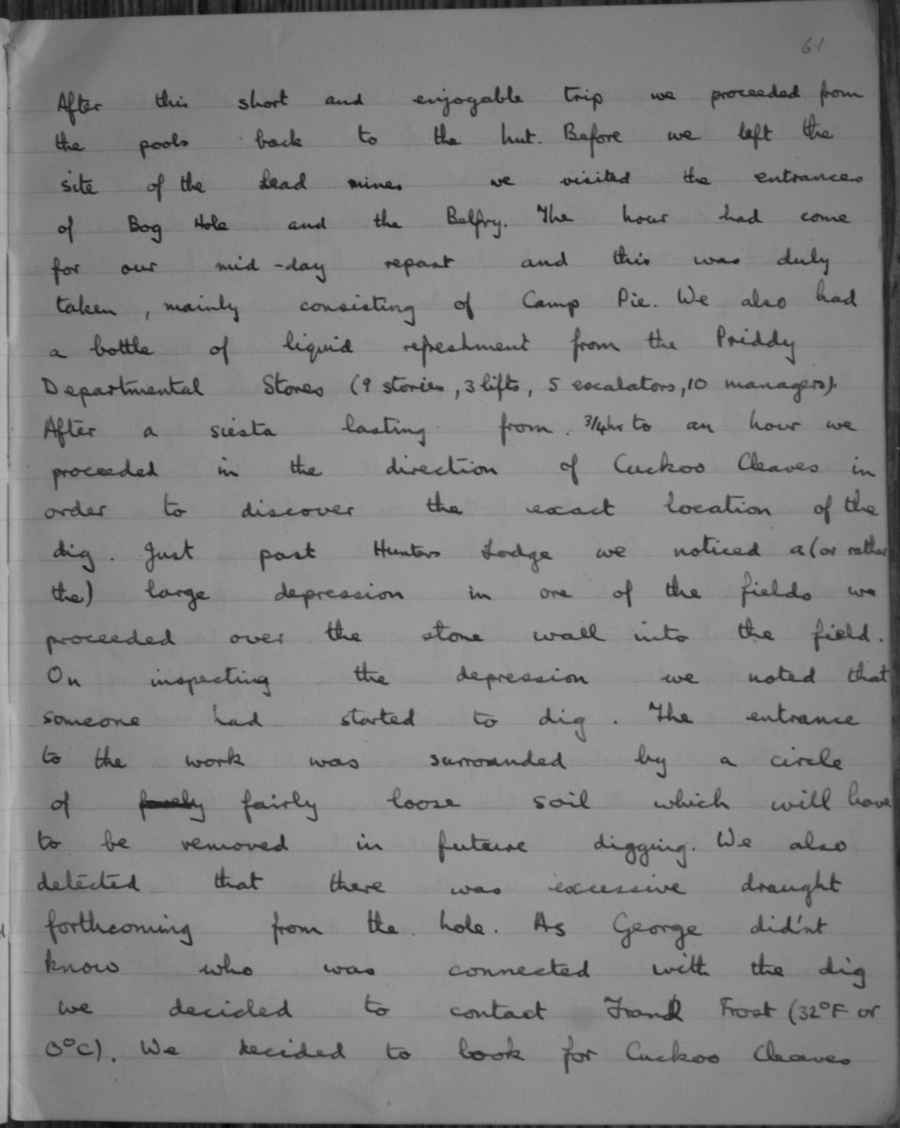 61
After this short and enjoyable trip we proceeded from
the pools back to the hut. Before we left the
site of the lead mines we visited the entrances
of Bog Hole and the Belfry. The hour had come
for our mid-day repast and this was duly
taken, mainly consisting of Camp Pie. We also had
a bottle of liquid refreshment from the Priddy
Departmental Stores (9 stories, 3 lifts, 5 escalators, 10 managers).
After a siesta lasting from 3/4 hr to an hour we
proceeded in the direction of Cuckoo Cleaves in
order to discover the exact location of the
dig. Just past Hunters Lodge we noticed a (or rather
the) large depression in one of the fields we
proceeded over the stone wall into the field.
On inspecting the depression we noted that
someone had started to dig. The entrance
to the work was surrounded by a circle
of fairly loose soil which will have
to be removed in future digging. We also
detected that there was excessive draught
forthcoming from the hole. As George did'nt
know who was connected with the dig
we decided to contact Frank Frost (32°F or
0°C). We decided to look for Cuckoo Cleaves